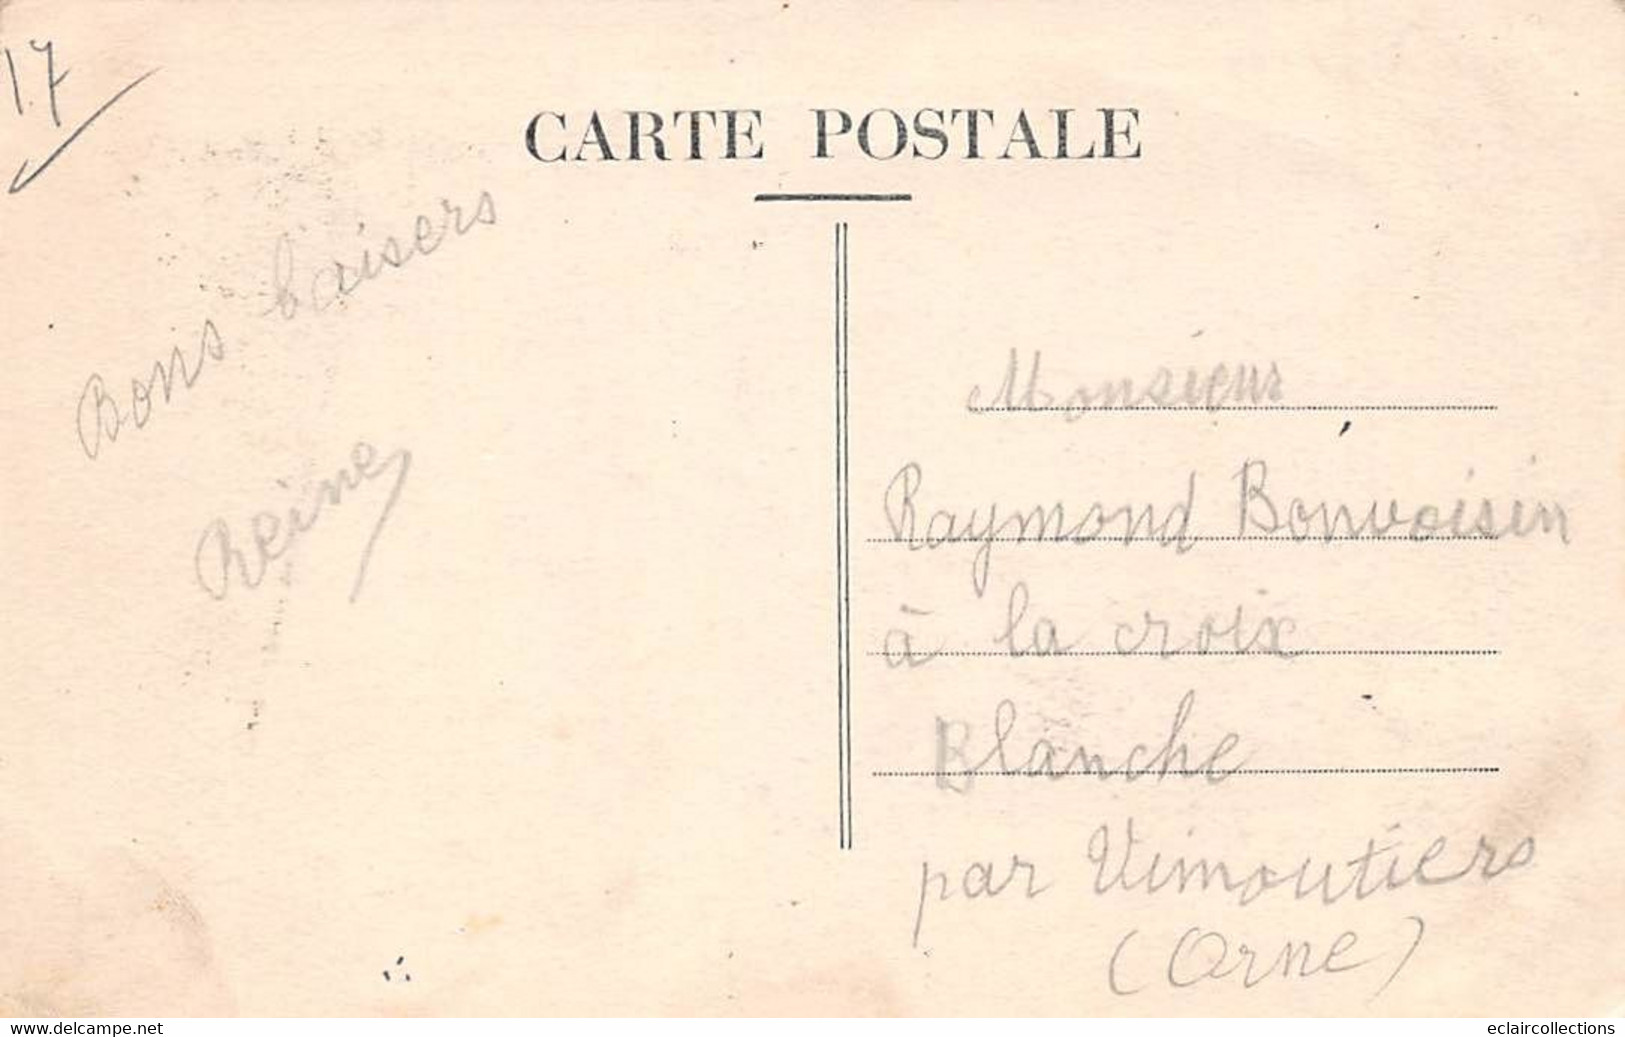 17
CARTE POSTALE
Bons baisers
Reine
Monsieur
Raymond Bonvoisin
à la croix
Blanche
par Vimoutiers
(Orne)
www.delcampe.net
eclaircollections